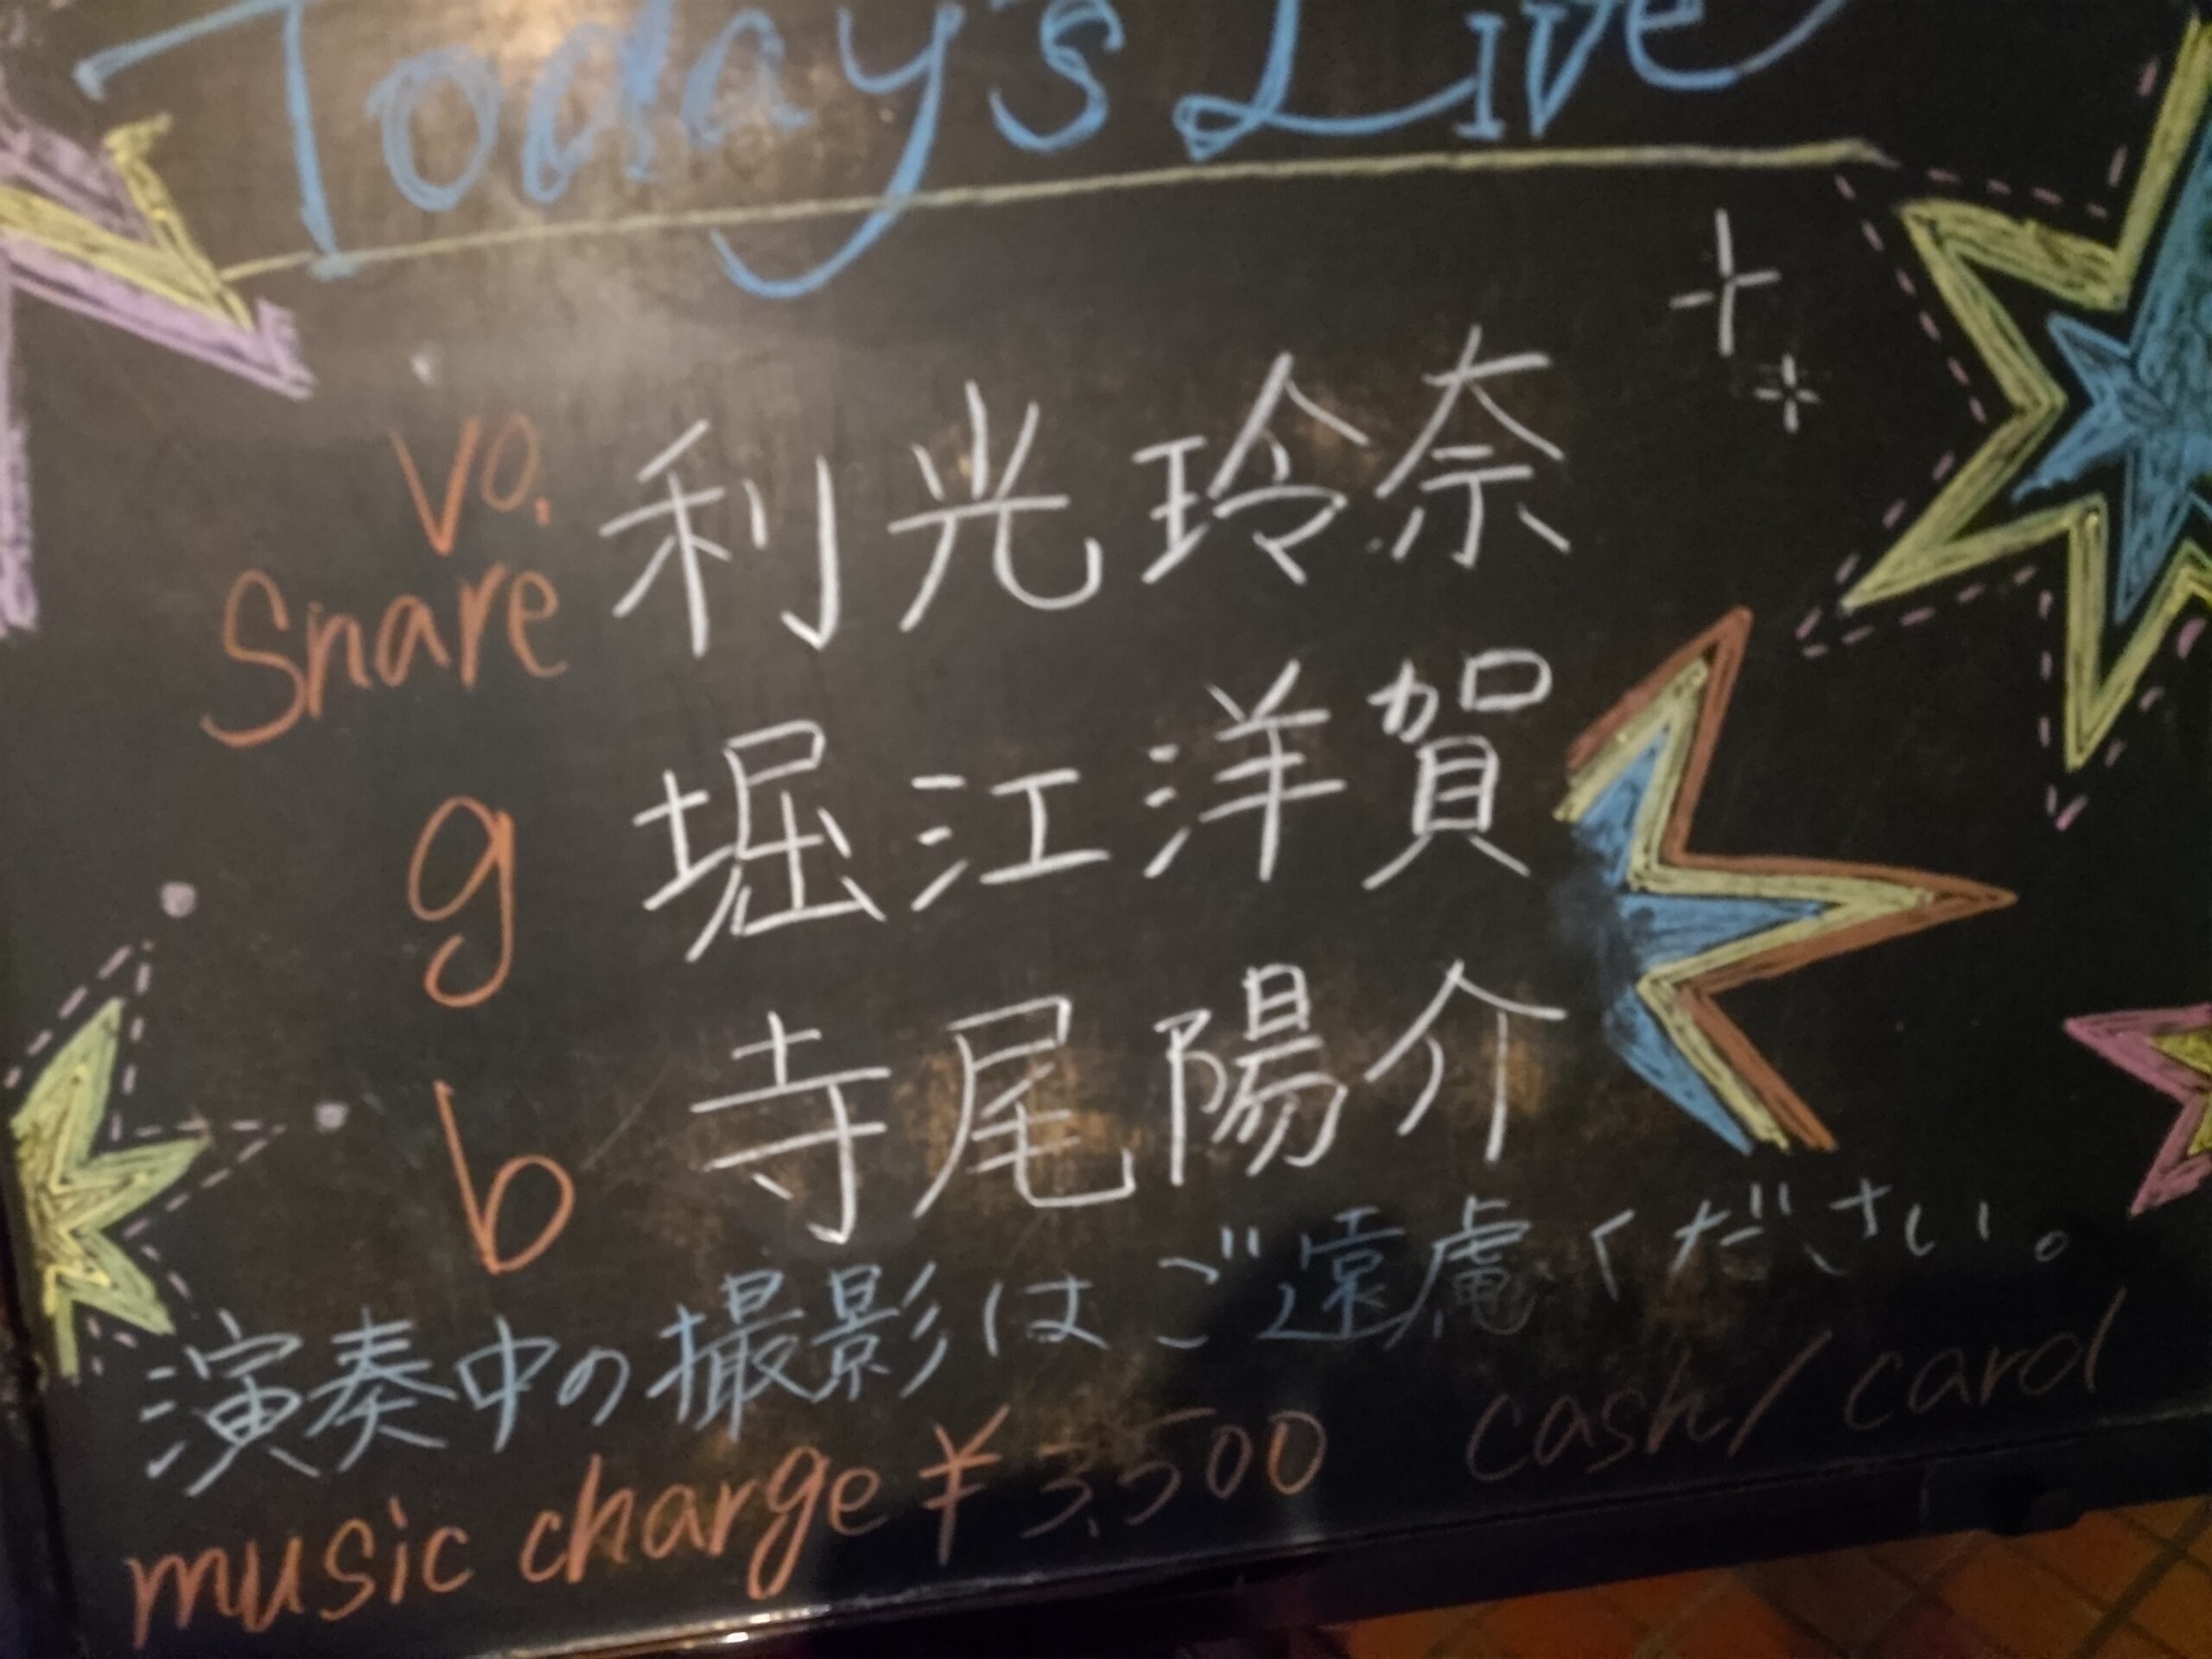 Today's Live
vo.
Snare 利光玲奈
g 堀江洋賀
b 寺尾陽介
演奏中の撮影はご遠慮ください。
music charge ¥3,500 cash/card